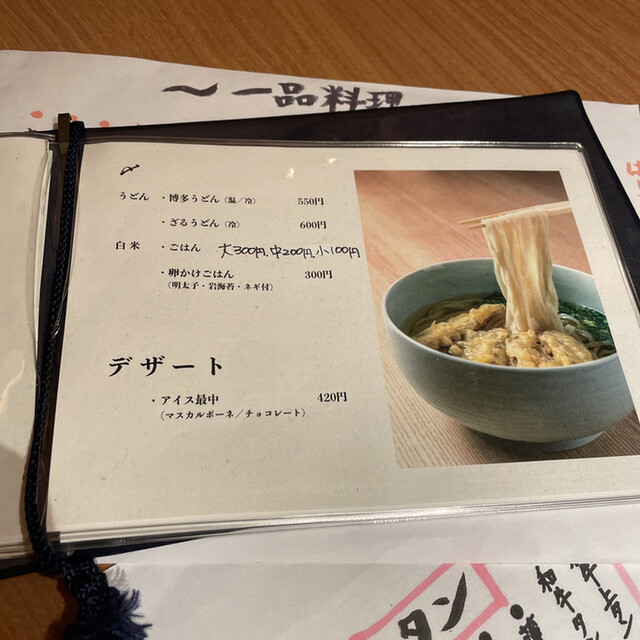 〜一品料理
〆
うどん ・博多うどん（温／冷） 550円
・ざるうどん（冷） 600円
白米 ・ごはん 大300円、中200円、小100円
・卵かけごはん 300円
（明太子・岩海苔・ネギ付）
デザート
・アイス最中 420円
（マスカルポーネ／チョコレート）
タン
和牛タ